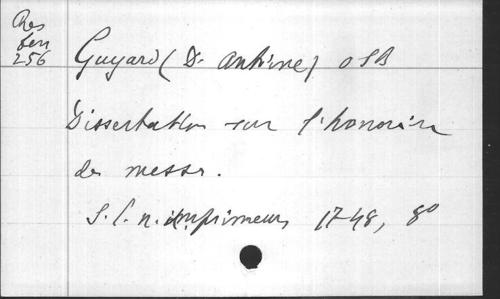 Res
fen
256
Guyard (D. Antoine) OSB
Dissertation sur l'honoraire
des messes.
S. l. n. imprimeur, 1748, 8°